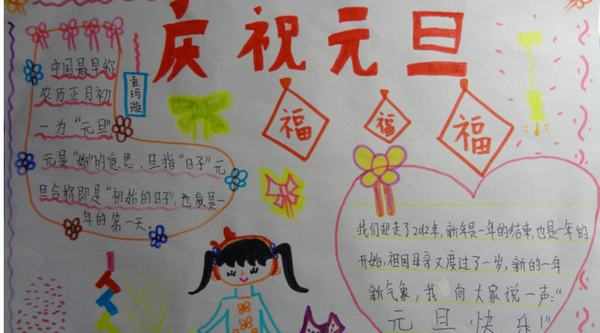 庆祝元旦
中国最早称
农历正月初
一为“元旦”
元是“始”的意思,旦指“日子”元
旦合称即是“初始的日子”,也就是一
年的第一天.
福
福
福
我们送走了2012年,新年是一年的结束,也是一年的
开始.祖国母亲又度过了一岁,新的一年
新气象,我向大家说一声:“
元旦快乐!”